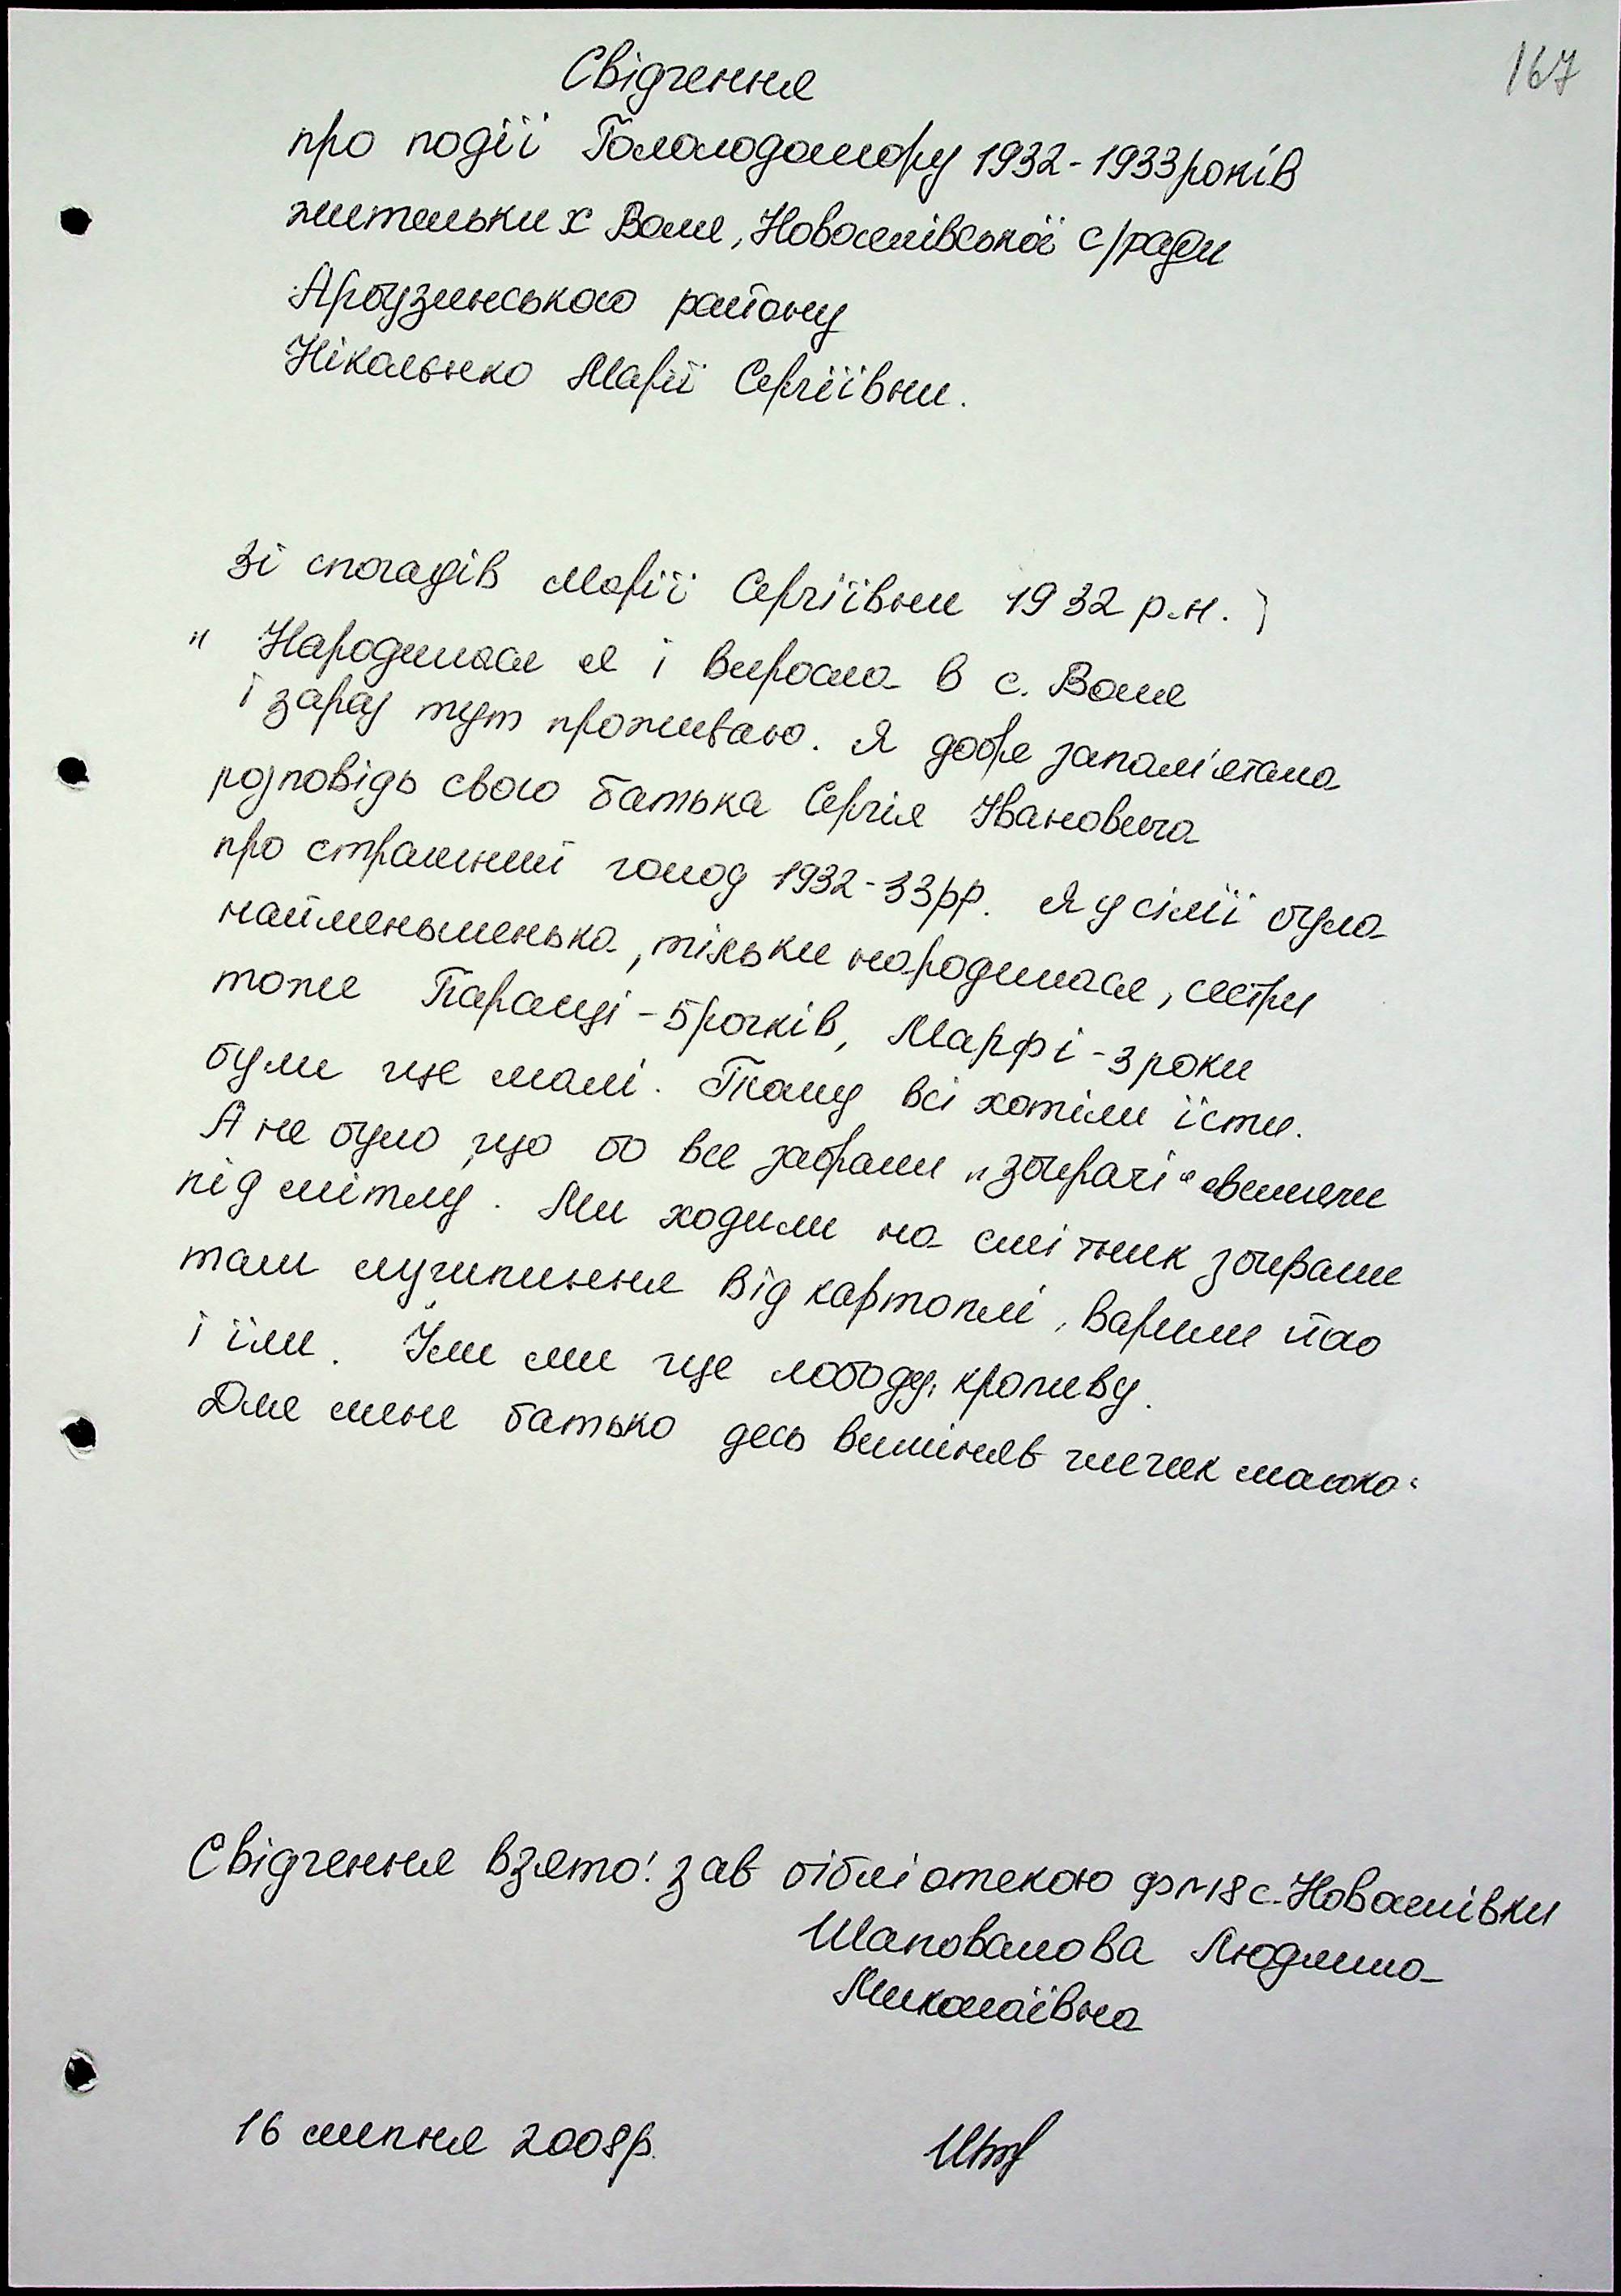 167
Свідчення
про події Гололодомору 1932-1933 років
жительки х Воля, Новоселівської с/ради
Арбузинського району
Нікольнко Марії Сергіївни.
Зі спогадів Марії Сергіївни 1932 р.н.
" Народилася я і виросла в с. Воля
і зараз тут проживаю. Я добре запам'ятала
розповідь свого батька Сергія Івановича
про страшний голод 1932-33рр. Я у сім'ї була
найменшенька, тільки народилася, сестри
тоже Парасці - 5 рочків, Марфі - 3 роки
були ще малі. Тому всі хотіли їсти.
А не було що бо все забрали „збирачі“ вимели
під мітлу. Ми ходили на смітник збирали
там лушпиння від картоплі, варили його
і їли. Їли ми ще лободу, кропиву.
Для мене батько десь виміняв глечик молока"
Свідчення взято: зав бібліотекою ф№18 с. Новоселівки
Шаповалова Людмила
Миколаївна
16 липня 2008р.